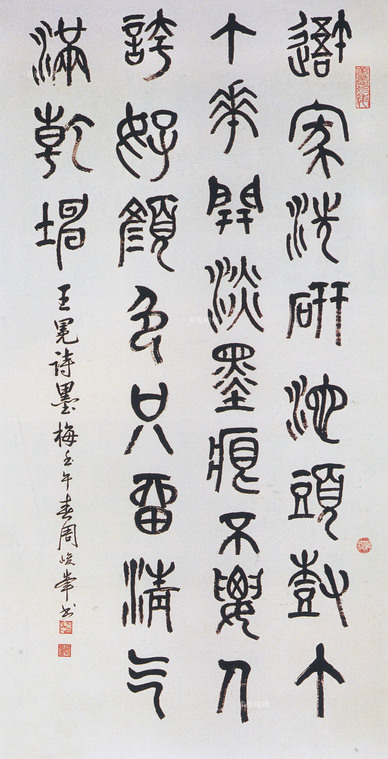 吾家洗研池頭樹个
个華開淡墨痕不要人
誇好顏色只留清气
滿乾坤
王冕詩墨梅壬午春周峻峯书